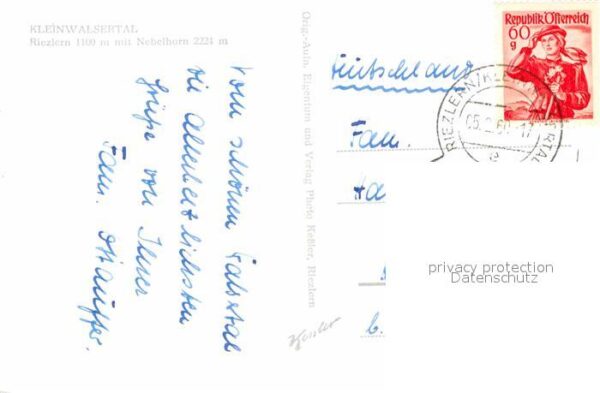 KLEINWALSERTAL
Riezlern 1100 m mit Nebelhorn 2224 m
Vom schönen Walsertal
die allerherzlichsten
Grüße von Ihrer
Fam.
Orig.-Aufn. Eigentum und Verlag Photo Keßler, Riezlern
Kessler
Republik Österreich
60
g
RIEZLERN/KLE
ERTAL
Deutschland
Fam.
Ha
b.
privacy protection
Datenschutz